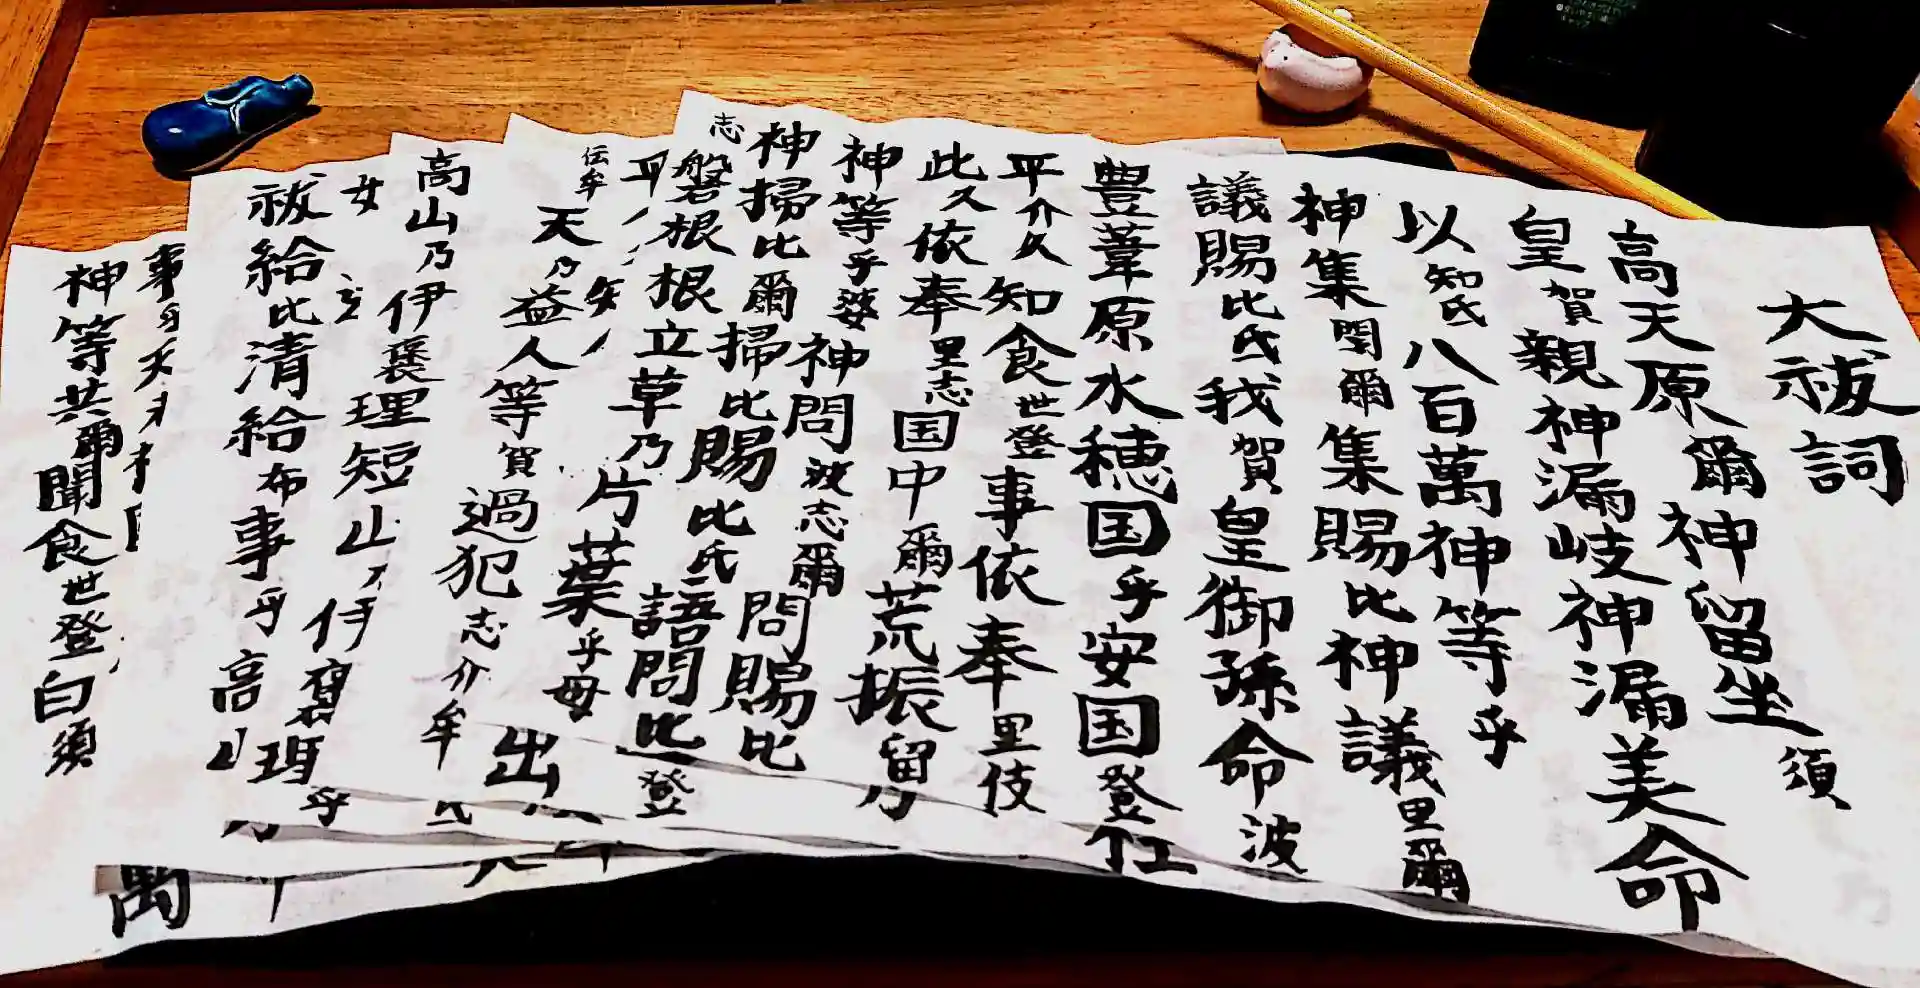 大祓詞
高天原爾神留坐須
皇賀親神漏岐神漏美命
以知氐八百萬神等乎
神集閇爾集賜比神議里爾
議賜比氐我賀皇御孫命波
豊葦原水穂国乎安国登
平介久知食世登事依奉里伎
此久依奉里志国中爾荒振留
神等乎婆神問波志爾問賜比
神掃比爾掃比賜比氐語問比登
志磐根根立草乃片葉乎母
伝牟天乃益人等賀過犯志介牟
高山乃伊褒理短山
祓給比清給布事乎高
事乎天
神等共爾聞食世登白須